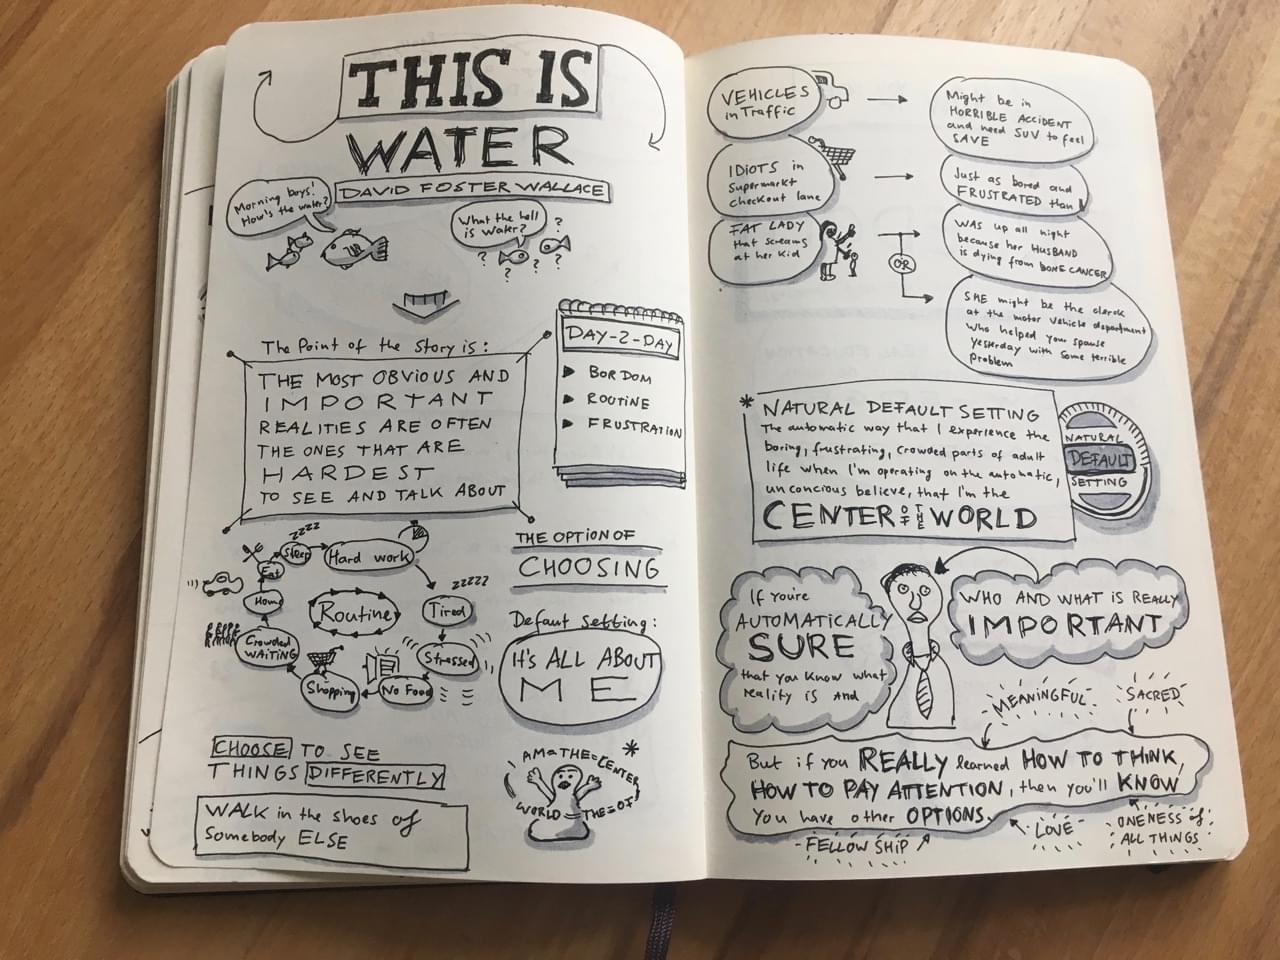 THIS IS
WATER
DAVID FOSTER WALLACE
Morning boys!
How's the water?
What the hell
is water?
?
?
?
?
?
The Point of the Story is:
THE MOST OBVIOUS AND
IMPORTANT
REALITIES ARE OFTEN
THE ONES THAT ARE
HARDEST
TO SEE AND TALK ABOUT
DAY-2-DAY
BORDOM
ROUTINE
FRUSTRATION
zzzz
Sleep
Hard work
Eat
zzzzz
Home
Routine
Tired
Crowded
WAITING
Stressed
Shopping
No Food
THE OPTION OF
CHOOSING
Defaut setting:
It's ALL ABOUT
ME
CHOOSE TO SEE
THINGS DIFFERENTLY
WALK in the shoes of
Somebody ELSE
AM=THE=CENTER
*
WORLD=THE=OF
VEHICLES
in Traffic
Might be in
HORRIBLE ACCIDENT
and need SUV to feel
SAVE
IDIOTS in
Supermarkt
checkout lane
Just as bored and
FRUSTRATED than I
FAT LADY
that screams
at her kid
WAS up all night
because her HUSBAND
is dying from BONE CANCER
OR
SHE might be the clerck
at the motor vehicle department
who helped your spouse
yesterday with some terrible
problem
* NATURAL DEFAULT SETTING
The automatic way that I experience the
boring, frustrating, crowded parts of adult
life when I'm operating on the automatic,
unconcious believe, that I'm the
CENTER OF THE WORLD
NATURAL
DEFAULT
SETTING
If you're
AUTOMATICALLY
SURE
that you know what
reality is and
WHO AND WHAT IS REALLY
IMPORTANT
MEANINGFUL
SACRED
But if you REALLY learned HOW TO THINK,
HOW TO PAY ATTENTION, then you'll KNOW
You have other OPTIONS.
FELLOWSHIP
LOVE
ONENESS of
ALL THINGS